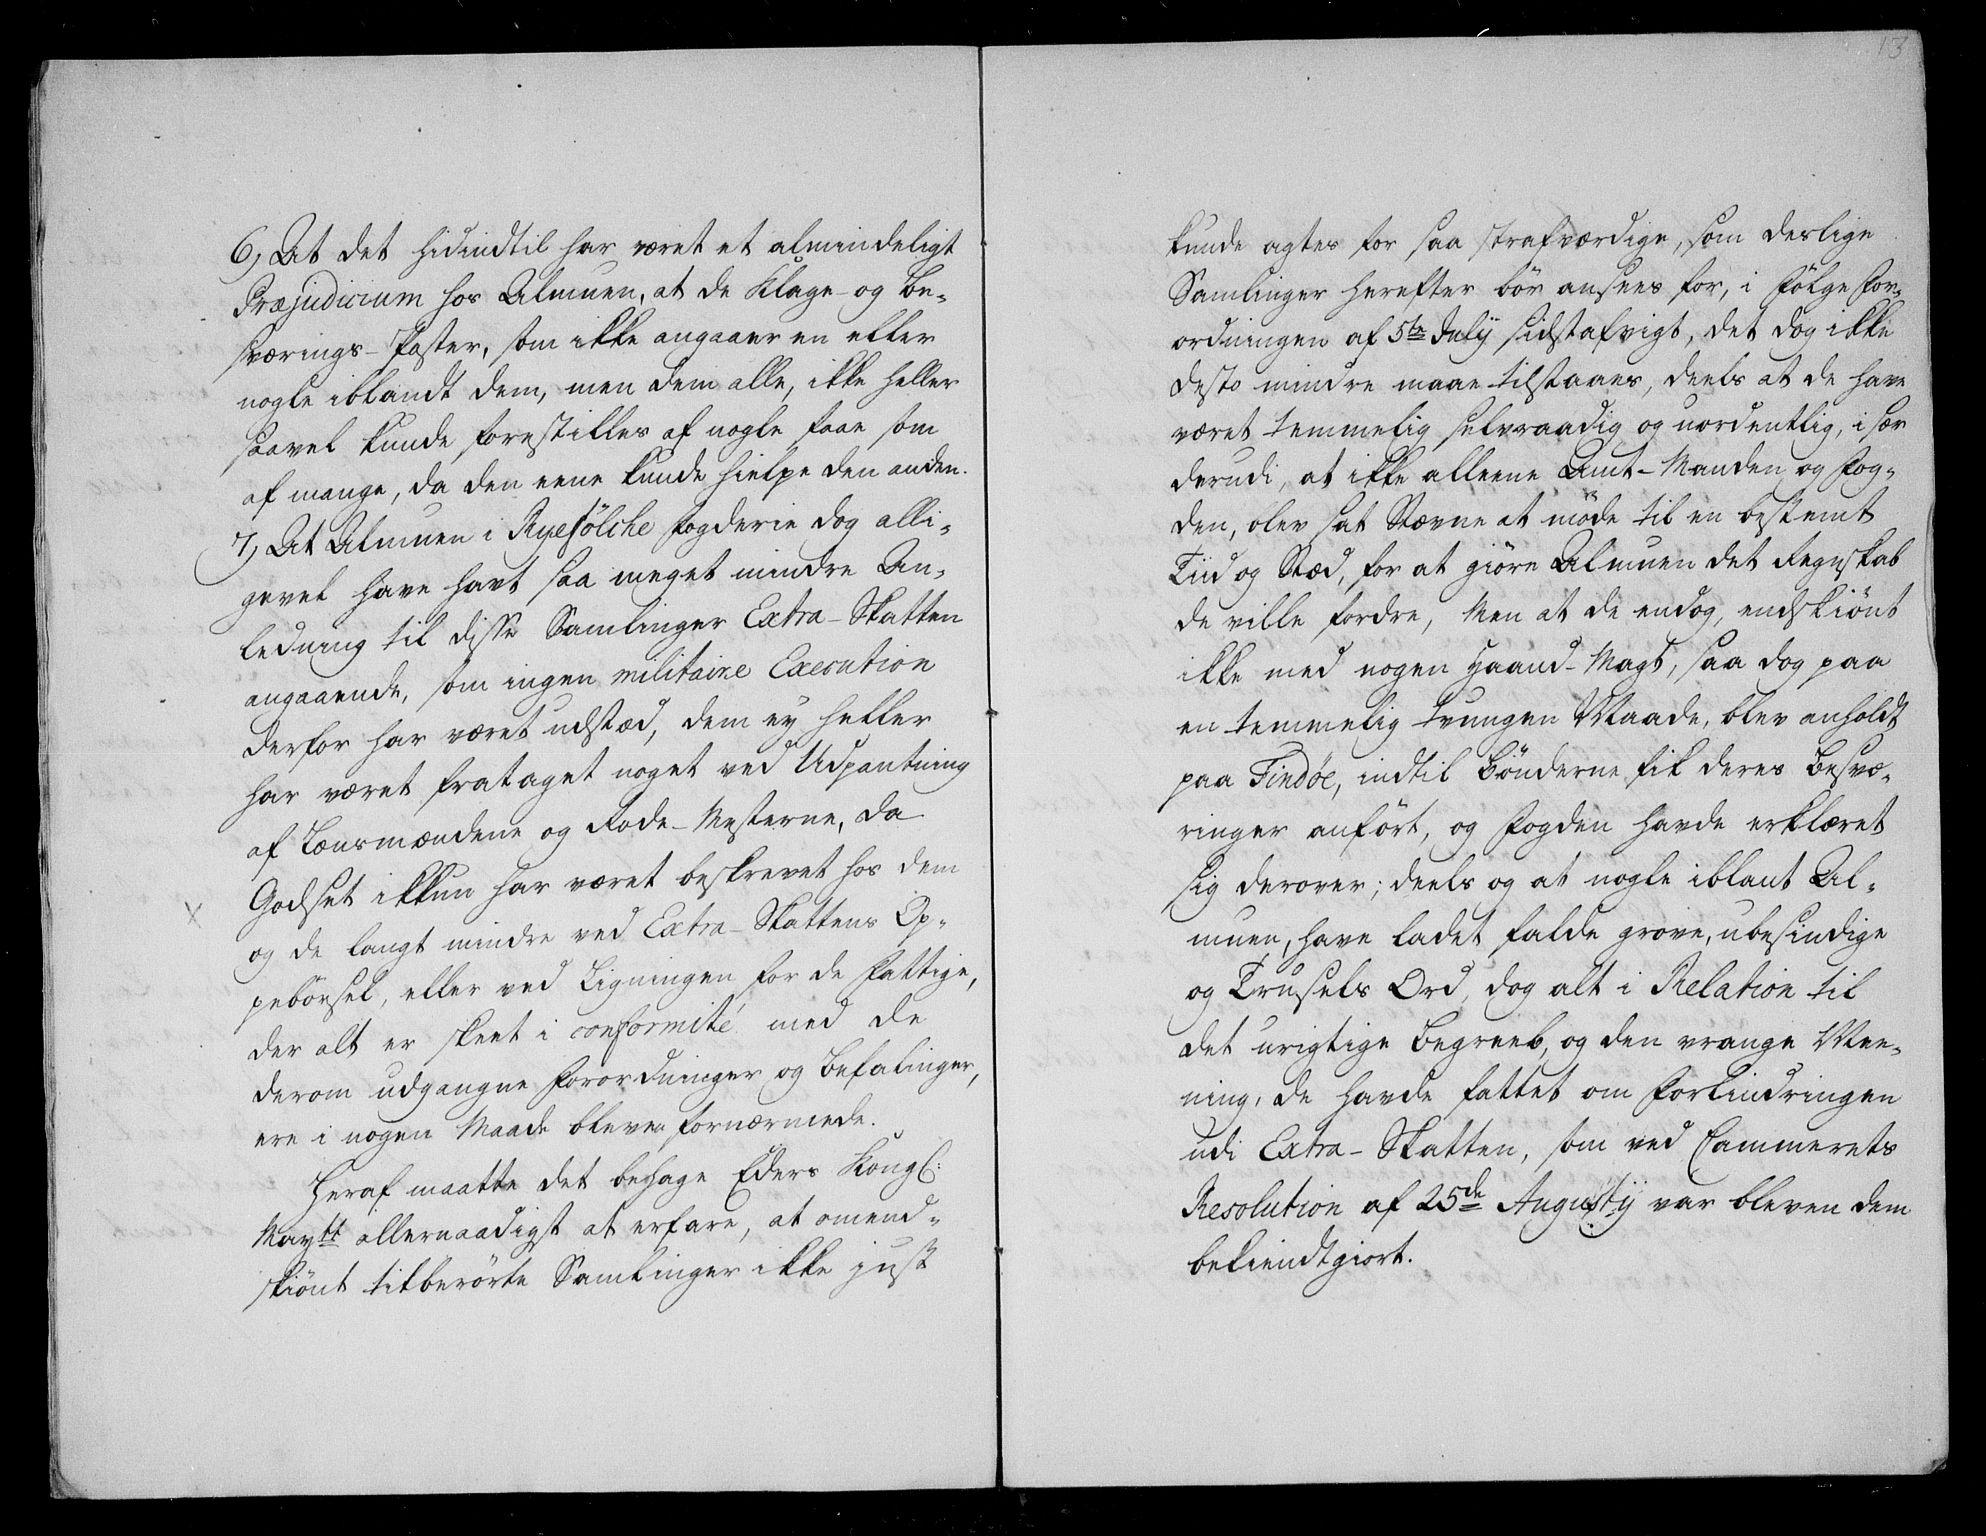 6, At det hidindtil har været et almindeligt
Præjudicium hos Almuen, at de Klage- og Be-
sværings-Poster, som ikke angaaer en eller
nogle iblandt dem, men dem alle, ikke heller
saavel kunde forestilles af nogle faae som
af mange, da den eene kunde hielpe den anden.
7, At Almuen i Ryefölche Fogderie dog alli-
gevel have havt saa meget mindre An-
ledning til disse Samlinger Extra-Skatten
angaaende, som ingen militaire Execution
derfor har været udstæd, dem ey heller
har været frataget noget ved Udpantning
af Lænsmændene og Rode-Mesterne, da
Godset ikkun har været beskrevet hos dem
x
og de langt mindre ved Extra-Skattens Op-
pebörsel, eller ved Ligningen for de Fattige,
der alt er skeet i conformité med de
derom udgangne Forordninger og Befalinger,
ere i nogen Maade bleven fornærmede.
Heraf maatte det behage Eders Kongl:
Maytt allernaadigst at erfare, at omend-
skiönt tilberörte Samlinger ikke just
13
kunde agtes for saa strafværdige, som deslige
Samlinger herefter bör ansees for, i Fölge For-
ordningen af 5te Julÿ sidstafvigt, det dog ikke
desto mindre maae tilstaaes, deels at de have
været temmelig selvraadig og uordentlig, i sær
derudi, at ikke alleene Amt-Manden og Fog-
den, blev sat Stævne at möde til en bestemt
Tiid og Stæd, for at giöre Almuen det Regnskab
de ville fordre, Men at de endog, endskiönt
ikke med nogen Haand-Magt, saa dog paa
en temmelig tvungen Maade, blev anholdt
paa Findöe, indtil Bönderne fik deres Besvæ-
ringer anfört, og Fogden havde erklæret
sig derover; deels og at nogle iblant Al-
muen, have ladet falde grove, ubesindige
og Trusels Ord, dog alt i Relation til
det urigtige Begreeb, og den vrange Mee-
ning, de havde fattet om Forlindringen
udi Extra-Skatten, som ved Cammerets
Resolution af 25de Augustÿ var bleven dem
bekiendtgiort.